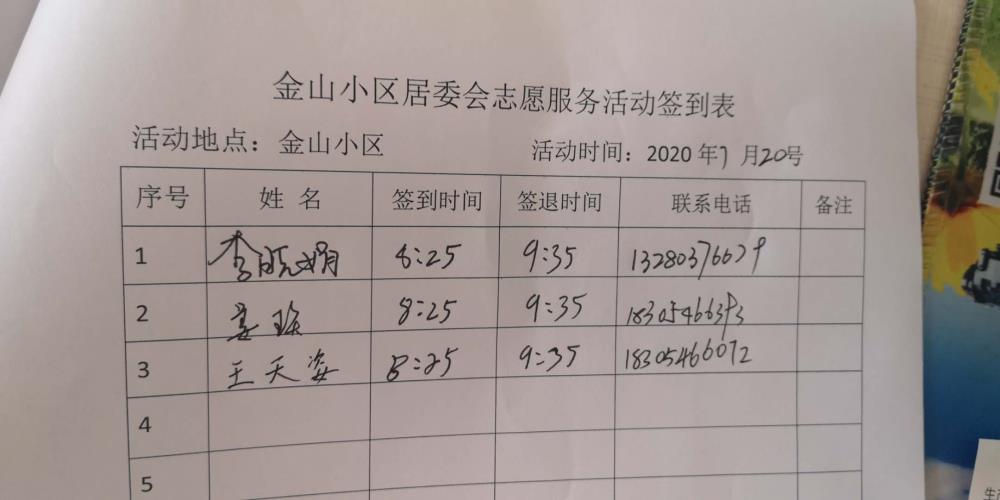 金山小区居委会志愿服务活动签到表
活动地点：金山小区 活动时间：2020年7月20号
序号 姓名 签到时间 签退时间 联系电话 备注
1 李晓娟 8:25 9:35 13280376679
2 姜珠 8:25 9:35 18305466393
3 王天姿 8:25 9:35 18305466072
4
5